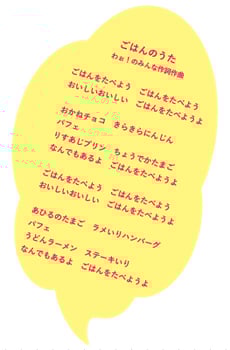 ごはんのうた
わぉ！のみんな作詞作曲
ごはんをたべよう　ごはんをたべよう
おいしいおいしい　ごはんをたべようよ
おかねチョコ　きらきらにんじん
パフェ
りすあじプリン　ちょうでかたまご
なんでもあるよ　ごはんをたべようよ
ごはんをたべよう　ごはんをたべよう
おいしいおいしい　ごはんをたべようよ
あひるのたまご　ラメいりハンバーグ
パフェ
うどんラーメン　ステーキいり
なんでもあるよ　ごはんをたべようよ